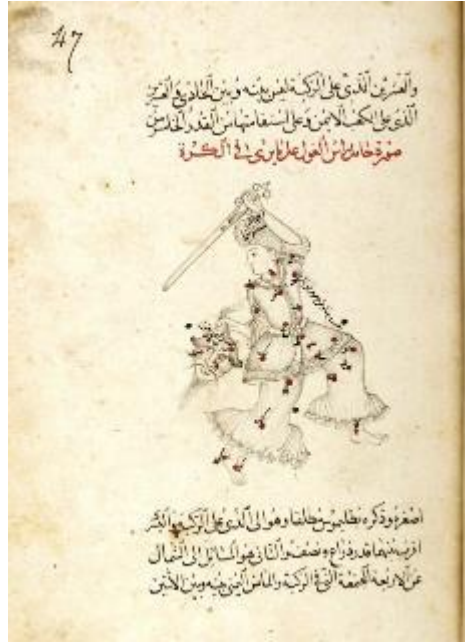 47
والعشرين الذي على الركبة ليس بينه وبين الحادي والعشرين
الذي على الكعب الايمن وعلى استقامتهما من القدر الخامس
صورة حامل راس الغول على ما يرى في الكرة
اصغره وذكره بطلميوس مطلقا وهو الى الذي على الركبة
اقرب منهما قدر ذراع ونصف والثاني هو المائل الى الشمال
عن الاربعة المجتمعة التي في الركبة والماس ليس بينه وبين الاثنين